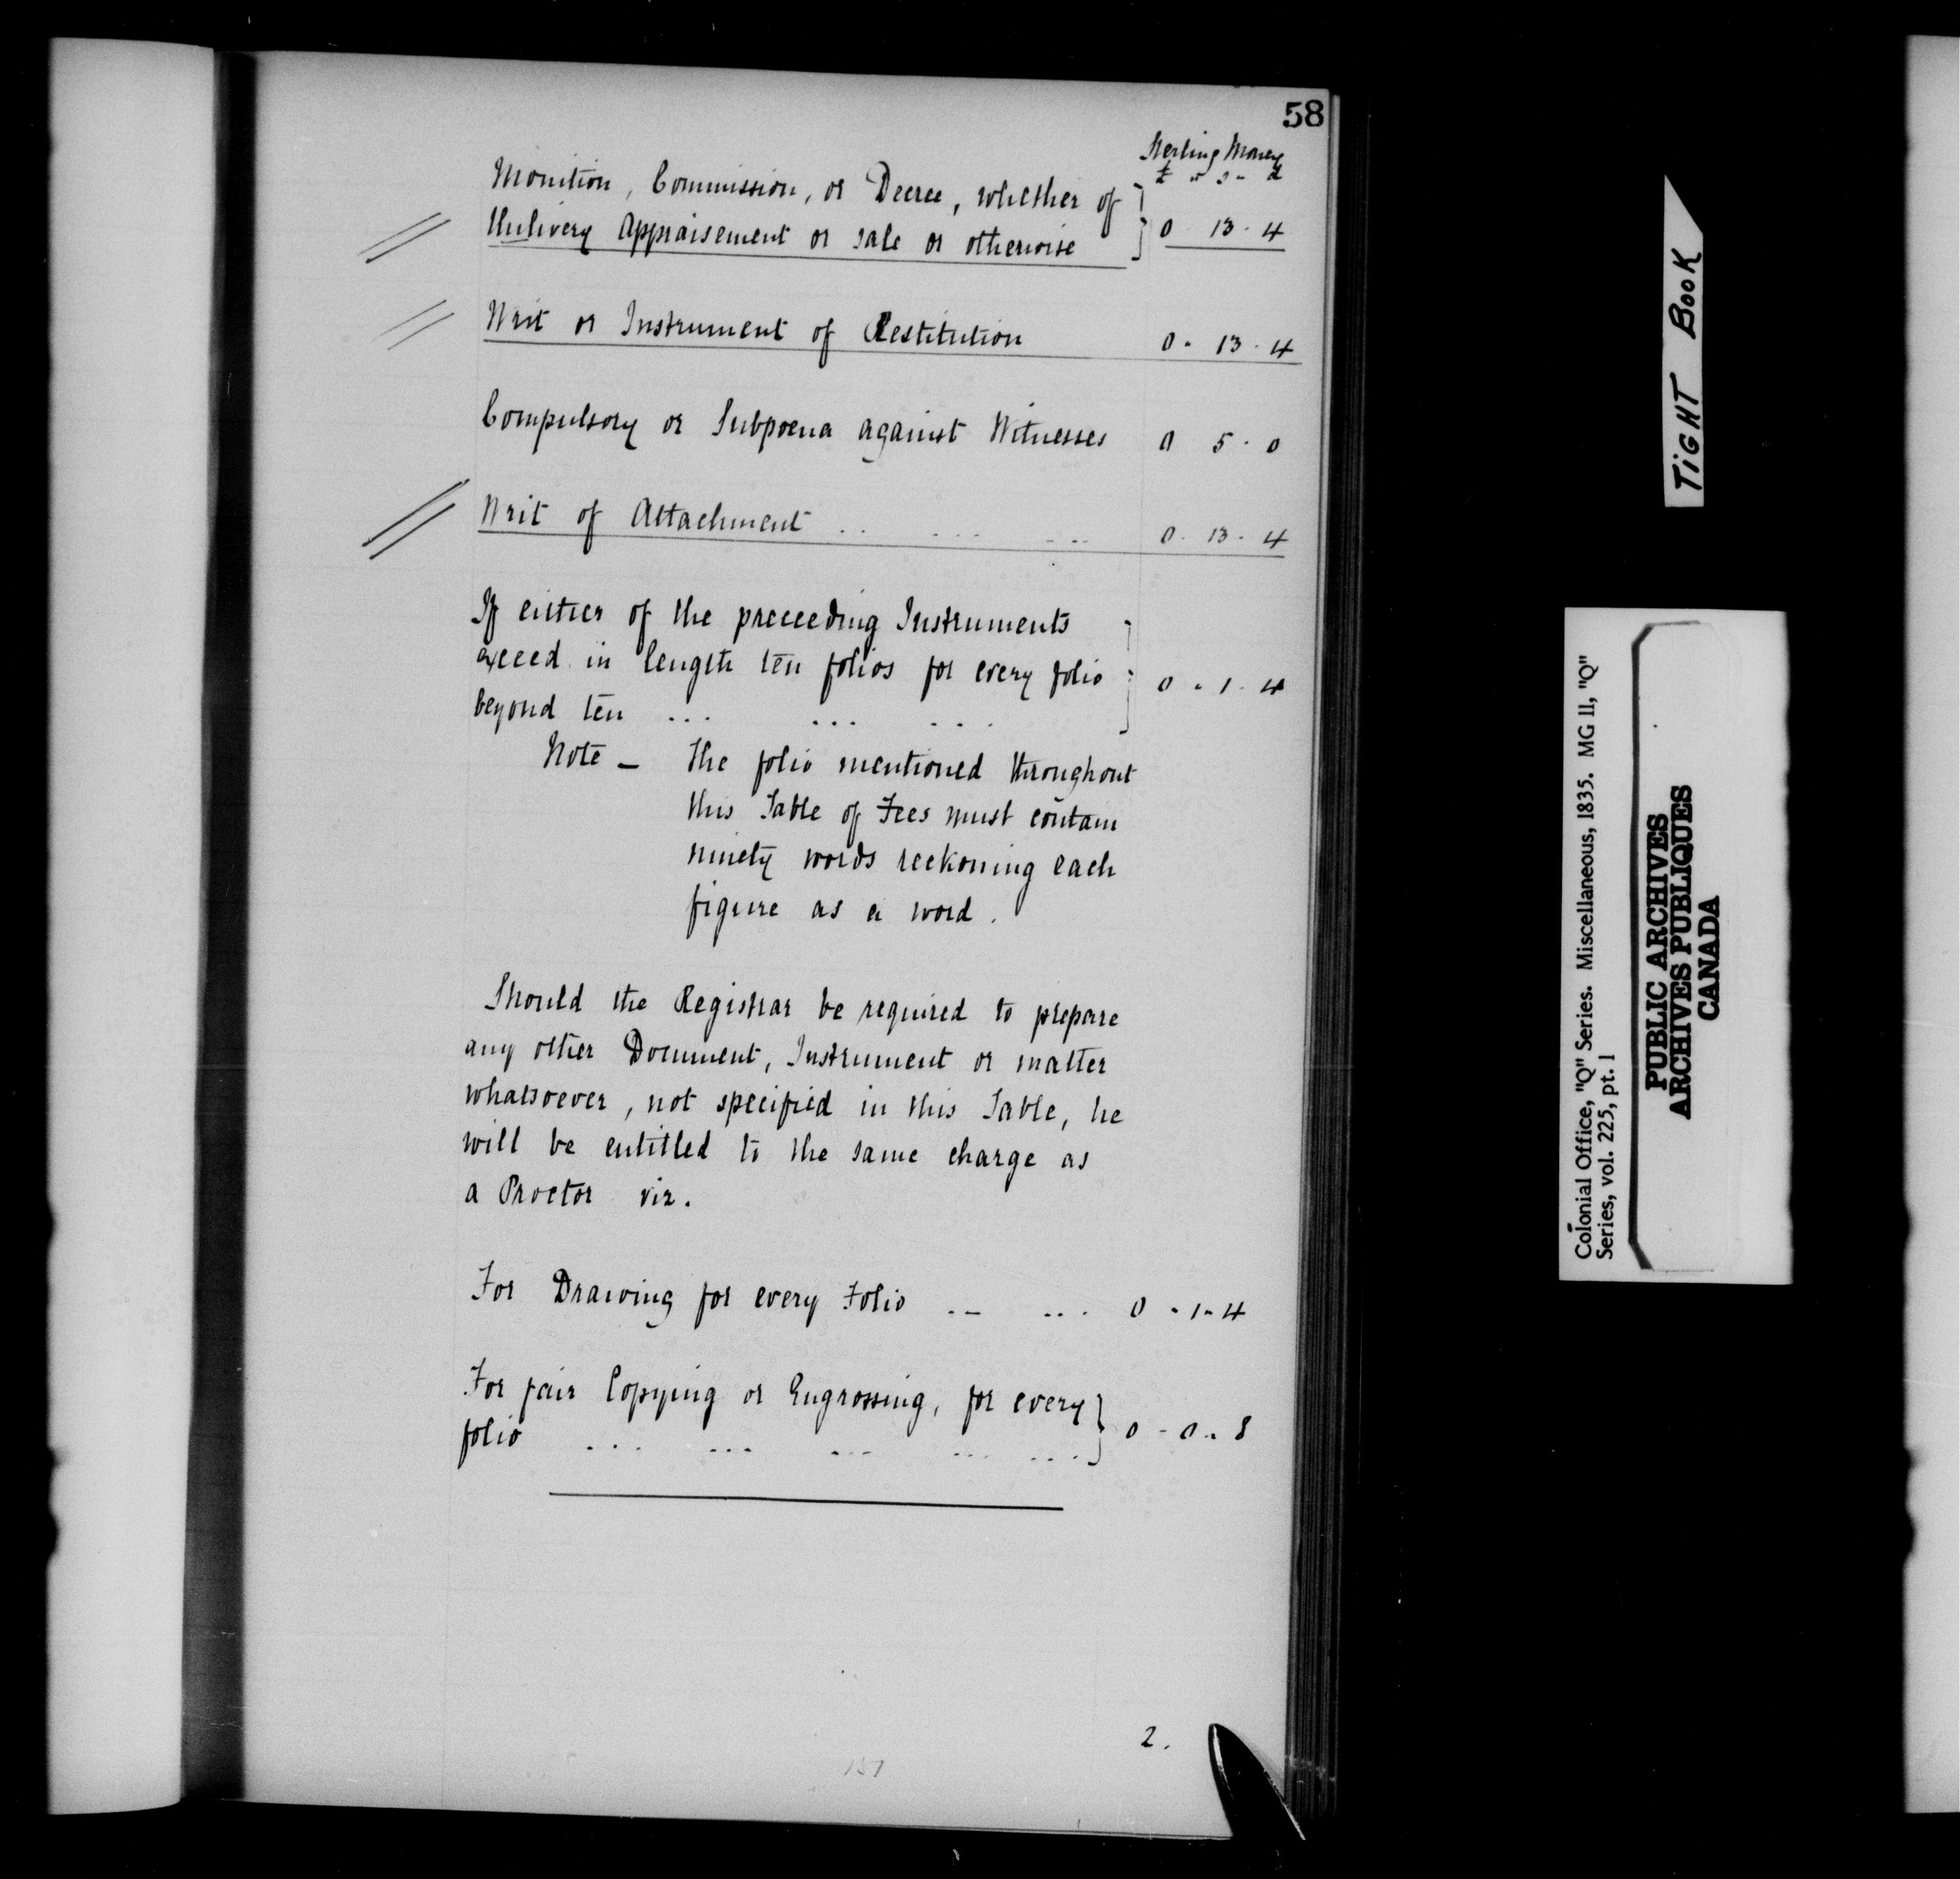 58
Sterling Money
£ " s - d
Monition, Commission, or Decree, whether of
Unlivery Appraisement or sale or otherwise } 0 . 13 . 4
Writ or Instrument of Restitution 0 . 13 . 4
Compulsory or Subpoena against Witnesses 0 5 . 0
Writ of Attachment .. ... ... 0 . 13 . 4
If either of the preceeding Instruments
exceed in length ten folios for every folio } 0 . 1 . 4
beyond ten ... ... ...
Note _ The folio mentioned throughout
this Table of Fees must contain
ninety words reckoning each
figure as a word .
Should the Registrar be required to prepare
any other Document, Instrument or matter
whatsoever, not specified in this Table, he
will be entitled to the same charge as
a Proctor viz.
For Drawing for every Folio .. ... 0 . 1 - 4
For fair Copying or Engrossing, for every
folio ... ... ... ... ... } 0 - 0 . 8
2.
151
TiGHT BOOK
Colonial Office, "Q" Series. Miscellaneous, 1835. MG 11, "Q"
Series, vol. 225, pt. 1
PUBLIC ARCHIVES
ARCHIVES PUBLIQUES
CANADA